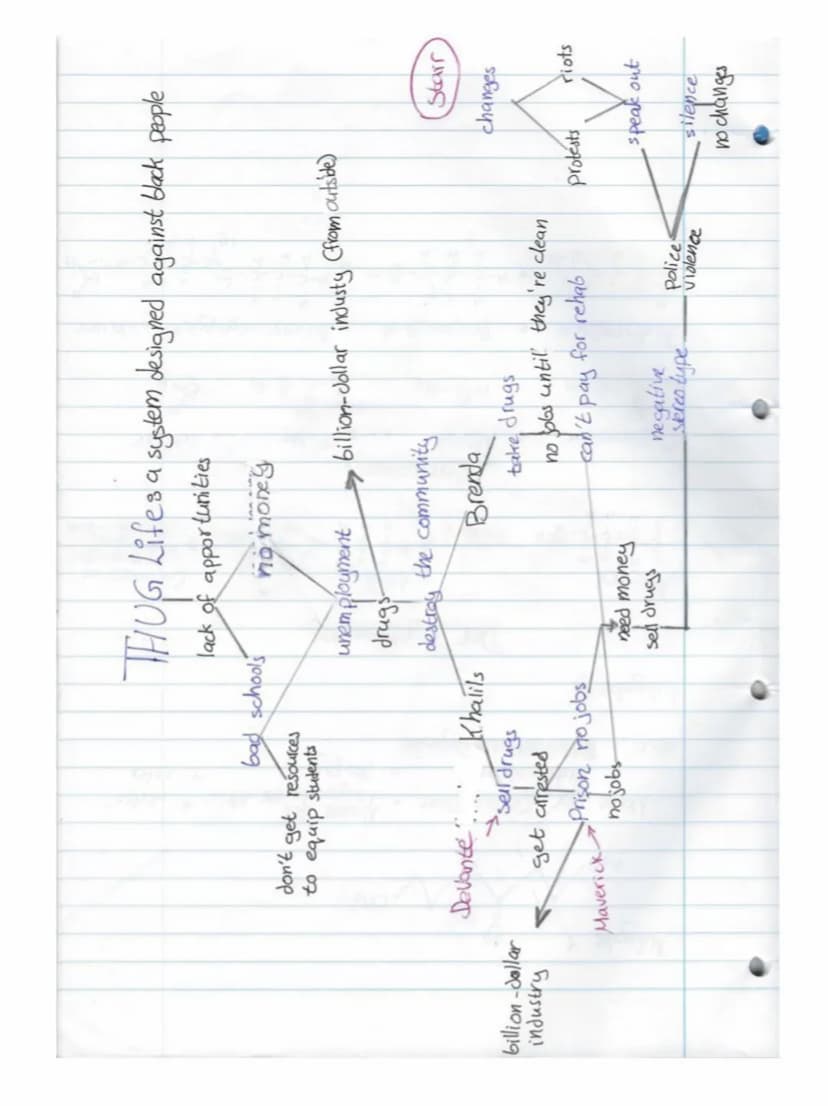 THUG Life = a system designed against black people
lack of apportunities
bad schools
no money
don't get resources
to equip students
unemployment
drugs
billion-dollar industy (from outside)
destroy the community
Khalils
Brenda
DeVante
sell drugs
take drugs
get arrested
no jobs until they're clean
prison
no jobs
can't pay for rehab
Maverick
no jobs
billion-dollar
industry
need money
sell drugs
negative
stereotype
Police
violence
speak out
silence
no changes
protests
riots
changes
Starr